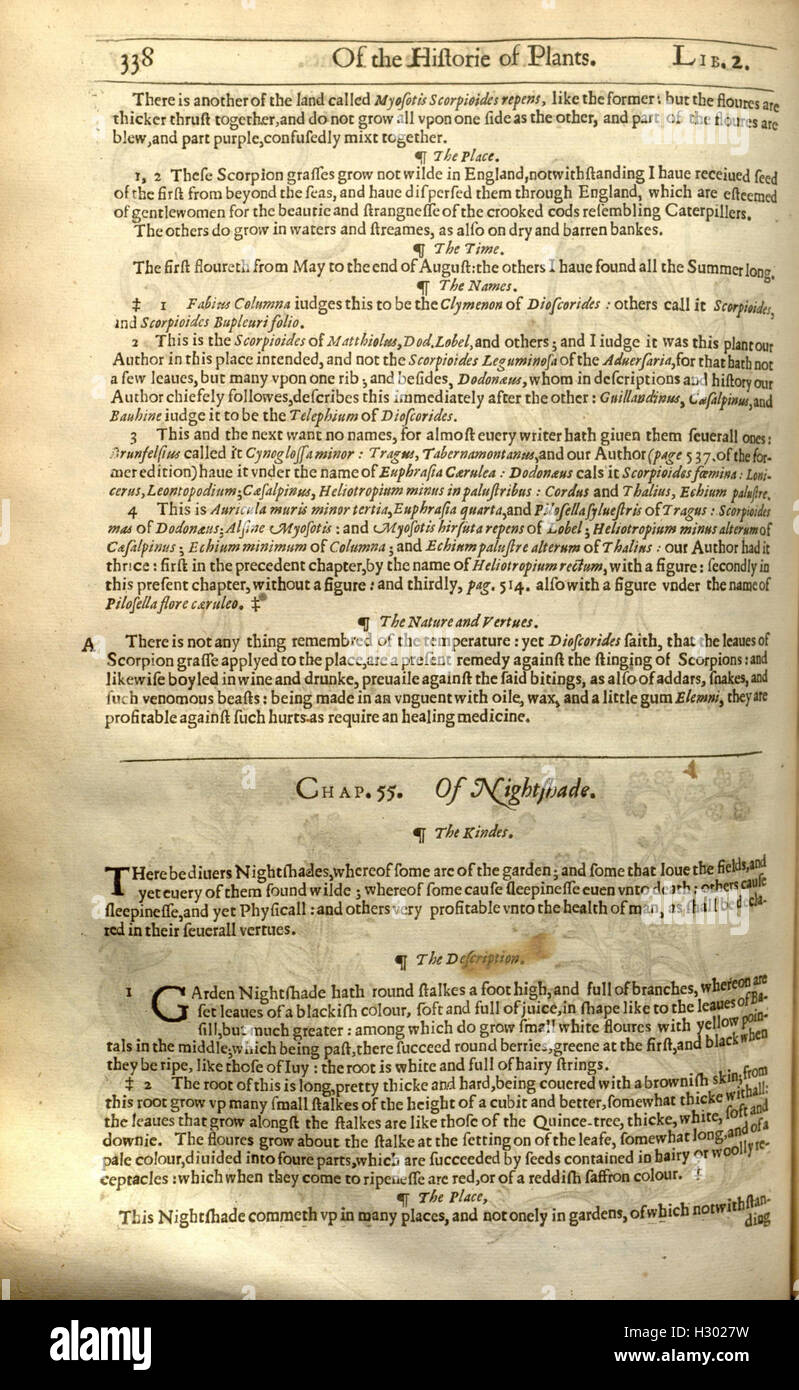 338 Of the Hiſtorie of Plants. LIB. 2.
There is another of the land called Myoſotis Scorpioides repens, like the former: but the floures are
thicker thruſt together, and do not grow all vpon one ſide as the other, and part of the floures are
blew, and part purple, confuſedly mixt together.
¶ The Place.
1, 2 Theſe Scorpion graſſes grow not wilde in England, notwithſtanding I haue receiued ſeed
of the firſt from beyond the ſeas, and haue diſperſed them through England, which are eſteemed
of gentlewomen for the beautie and ſtrangneſſe of the crooked cods reſembling Caterpillers.
The others do grow in waters and ſtreames, as alſo on dry and barren bankes.
¶ The Time.
The firſt floureth from May to the end of Auguſt: the others I haue found all the Summer long.
¶ The Names.
‡ 1 Fabius Columna iudges this to be the Clymenon of Dioſcorides: others call it Scorpioides,
and Scorpioides Bupleuri folio.
2 This is the Scorpioides of Matthiolus, Dod. Lobel, and others; and I iudge it was this plant our
Author in this place intended, and not the Scorpioides Leguminoſa of the Aduerſaria, for that hath not
a few leaues, but many vpon one rib; and beſides, Dodonæus, whom in deſcriptions and hiſtory our
Author chiefely followes, deſcribes this immediately after the other: Guillandinus, Cæſalpinus, and
Bauhine iudge it to be the Telephium of Dioſcorides.
3 This and the next want no names, for almoſt euery writer hath giuen them ſeuerall ones:
Brunfelſius called it Cynogloſſa minor: Tragus, Tabernamontanus, and our Author (page 537. of the for-
mer edition) haue it vnder the name of Euphraſia Cærulea: Dodonæus cals it Scorpioides fœmina: Loni-
cerus, Leontopodium; Cæſalpinus, Heliotropium minus in paluſtribus: Cordus and Thalius, Echium paluſtre.
4 This is Auricula muris minor tertia, Euphraſia quarta, and Piloſella ſylueſtris of Tragus: Scorpioides
mas of Dodonæus: Alſine Myoſotis: and Myoſotis hirſuta repens of Lobel; Heliotropium minus alterum of
Cæſalpinus; Echium minimum of Columna; and Echium paluſtre alterum of Thalius: our Author had it
thrice: firſt in the precedent chapter, by the name of Heliotropium rectum, with a figure: ſecondly in
this preſent chapter, without a figure: and thirdly, pag. 514. alſo with a figure vnder the name of
Piloſella flore cæruleo. ‡
¶ The Nature and Vertues.
A There is not any thing remembred of the temperature: yet Dioſcorides ſaith, that the leaues of
Scorpion graſſe applyed to the place, are a preſent remedy againſt the ſtinging of Scorpions: and
likewiſe boyled in wine and drunke, preuaile againſt the ſaid bitings, as alſo of addars, ſnakes, and
ſuch venomous beaſts: being made in an vnguent with oile, wax, and a little gum Elemni, they are
profitable againſt ſuch hurts as require an healing medicine.
CHAP. 55. Of Nightſhade.
¶ The Kindes.
THere be diuers Nightſhades, whereof ſome are of the garden; and ſome that loue the fields, and
yet euery of them found wilde; whereof ſome cauſe ſleepineſſe euen vnto death: others cauſe
ſleepineſſe, and yet Phyſicall: and others very profitable vnto the health of man, as ſhall be decla-
red in their ſeuerall vertues.
¶ The Deſcription.
1 GArden Nightſhade hath round ſtalkes a foot high, and full of branches, whereon are
ſet leaues of a blackiſh colour, ſoft and full of juice, in ſhape like to the leaues of Ba-
ſill, but much greater: among which do grow ſmall white floures with yellow poin-
tals in the middle; which being paſt, there ſucceed round berries, greene at the firſt, and black when
they be ripe, like thoſe of Iuy: the root is white and full of hairy ſtrings.
‡ 2 The root of this is long, pretty thicke and hard, being couered with a browniſh skin; from
this root grow vp many ſmall ſtalkes of the height of a cubit and better, ſomewhat thicke withall:
the leaues that grow alongſt the ſtalkes are like thoſe of the Quince-tree, thicke, white, ſoft and
downie. The floures grow about the ſtalke at the ſetting on of the leafe, ſomewhat long, and of a
pale colour, diuided into foure parts, which are ſucceeded by ſeeds contained in hairy or woolly re-
ceptacles: which when they come to ripeneſſe are red, or of a reddiſh ſaffron colour. ‡
¶ The Place,
This Nightſhade commeth vp in many places, and not onely in gardens, of which notwithſtan-
ding
alamy
Image ID: H3027W
www.alamy.com